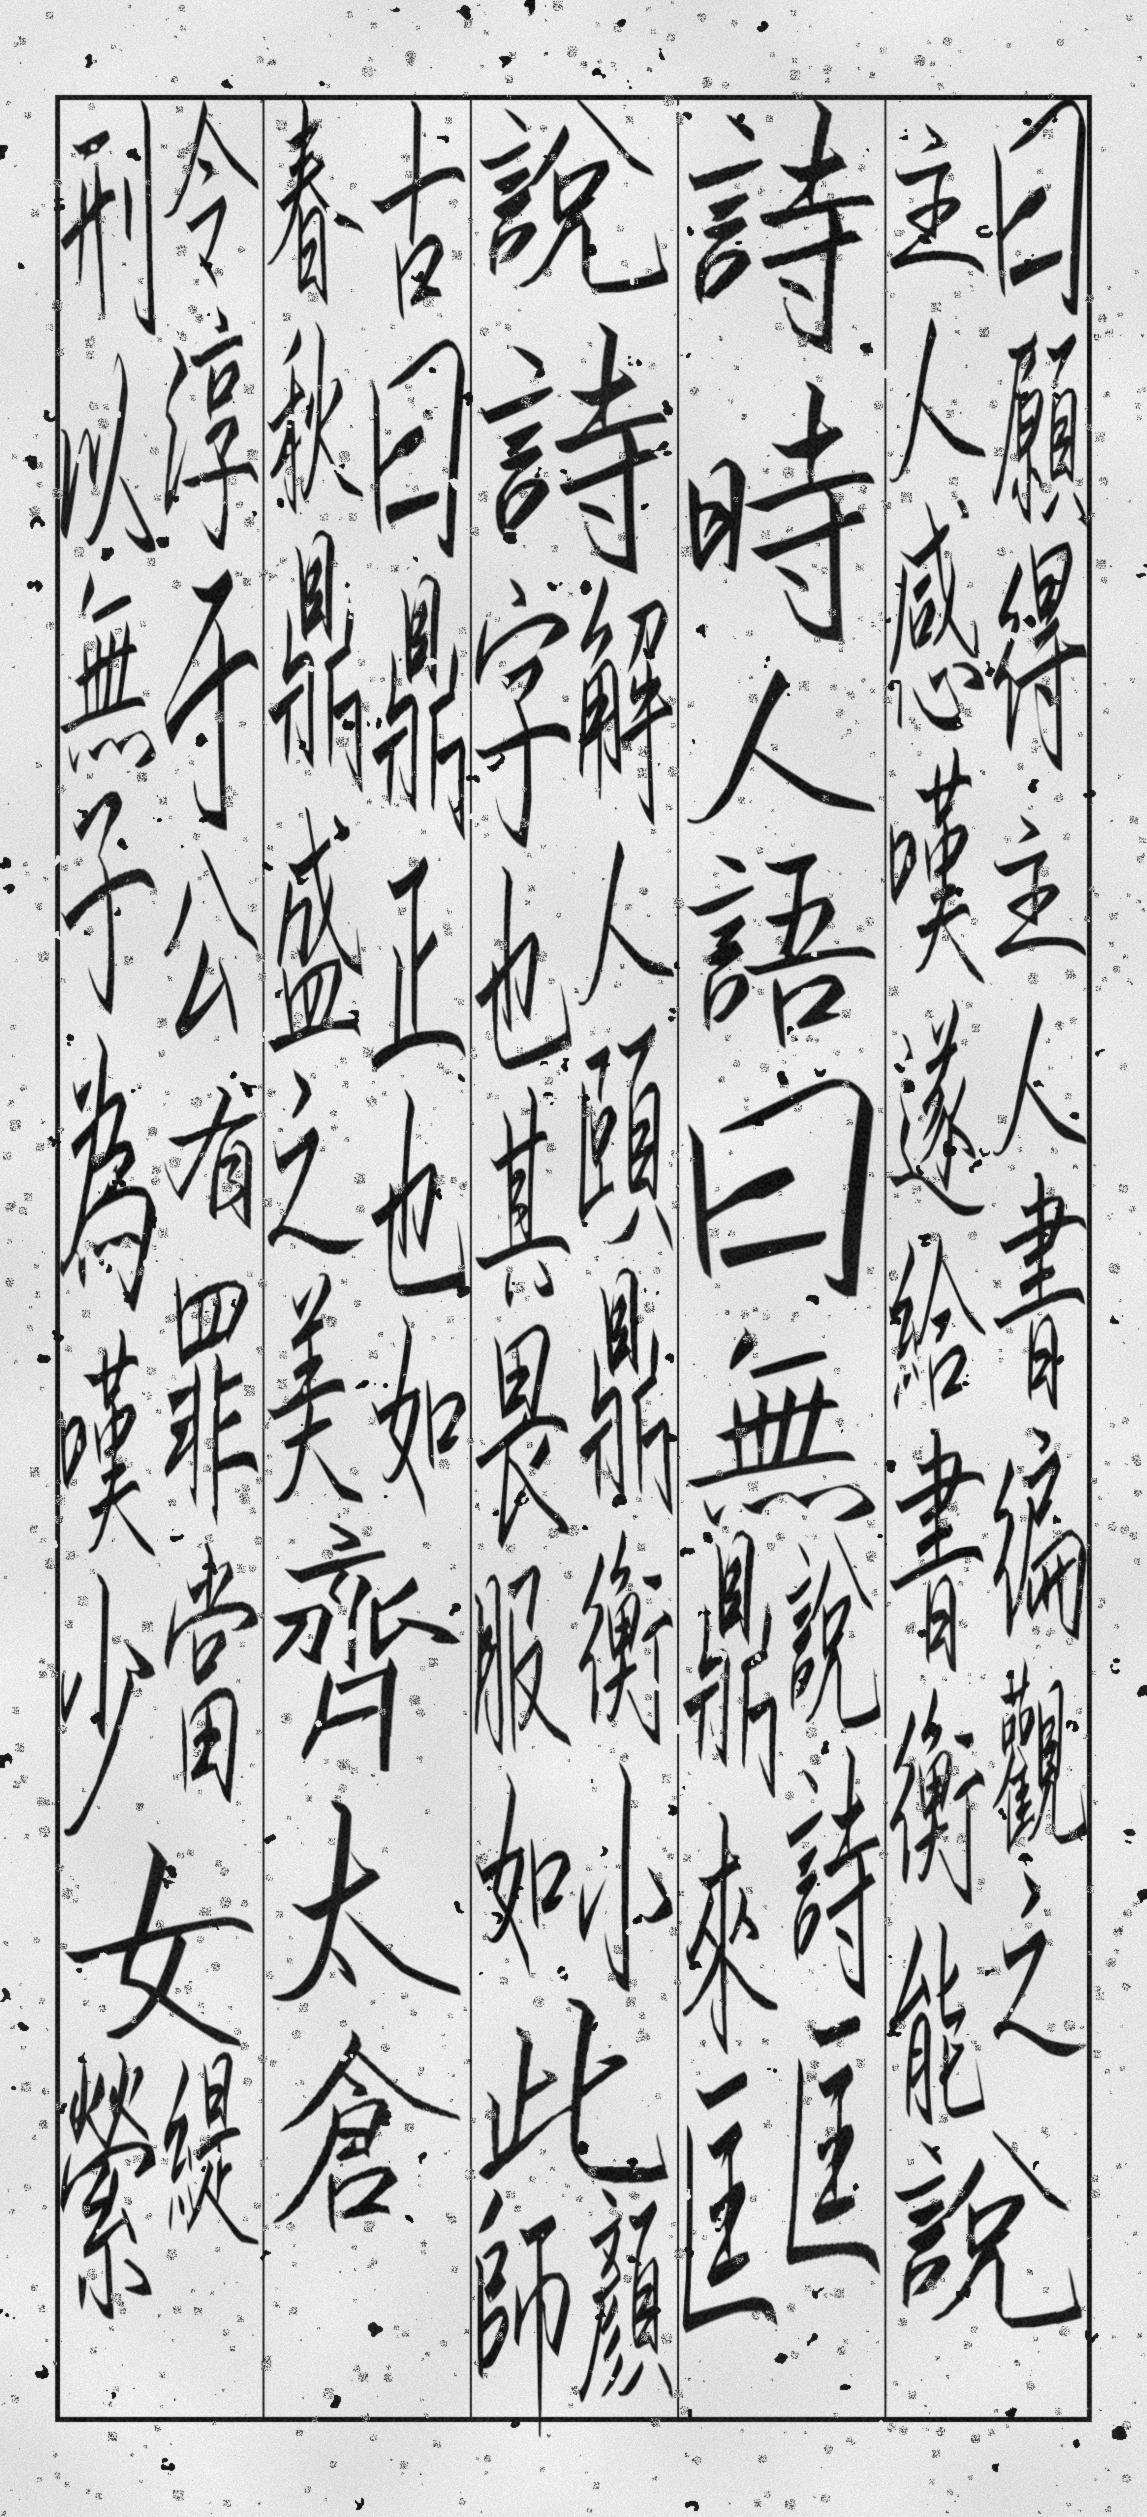 曰願得主人書偏觀之
主人感嘆遂給書衡能
說
詩時人語曰無
說詩匡
鼎來匡
說詩
解人頤鼎衡小
字也其畏服如
此
顏
師
古曰鼎正也如
春秋鼎盛之美
齊太倉
令淳于公有罪當
刑以無子為嘆少
女
緹
縈